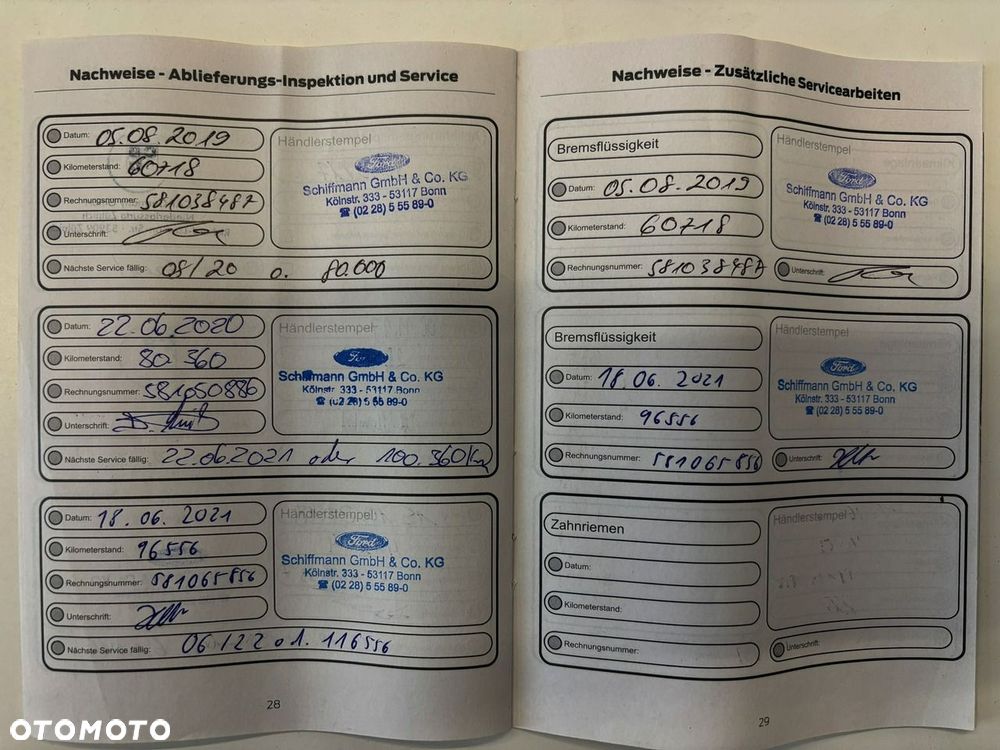 Nachweise - Ablieferungs-Inspektion und Service
Datum: 05.08.2019
Kilometerstand: 60718
Rechnungsnummer: 581038487
Unterschrift:
Nächste Service fällig: 08/20 o. 80.000
Händlerstempel
Ford
Schiffmann GmbH & Co. KG
Kölnstr. 333 - 53117 Bonn
☎ (02 28) 5 55 89-0
Datum: 22.06.2020
Kilometerstand: 80 360
Rechnungsnummer: 581050886
Unterschrift:
Nächste Service fällig: 22.06.2021 oder 100.360 Km
Händlerstempel
Ford
Schiffmann GmbH & Co. KG
Kölnstr. 333 - 53117 Bonn
☎ (02 28) 5 55 89-0
Datum: 18.06.2021
Kilometerstand: 96556
Rechnungsnummer: 581065856
Unterschrift:
Nächste Service fällig: 06/22 od. 116556
Händlerstempel
Ford
Schiffmann GmbH & Co. KG
Kölnstr. 333 - 53117 Bonn
☎ (02 28) 5 55 89-0
28
Nachweise - Zusätzliche Servicearbeiten
Bremsflüssigkeit
Datum: 05.08.2019
Kilometerstand: 60718
Rechnungsnummer: 581038487
Händlerstempel
Ford
Schiffmann GmbH & Co. KG
Kölnstr. 333 - 53117 Bonn
☎ (02 28) 5 55 89-0
Unterschrift:
Bremsflüssigkeit
Datum: 18.06.2021
Kilometerstand: 96556
Rechnungsnummer: 581065856
Händlerstempel
Ford
Schiffmann GmbH & Co. KG
Kölnstr. 333 - 53117 Bonn
☎ (02 28) 5 55 89-0
Unterschrift:
Zahnriemen
Datum:
Kilometerstand:
Rechnungsnummer:
Händlerstempel
Unterschrift:
29
OTOMOTO